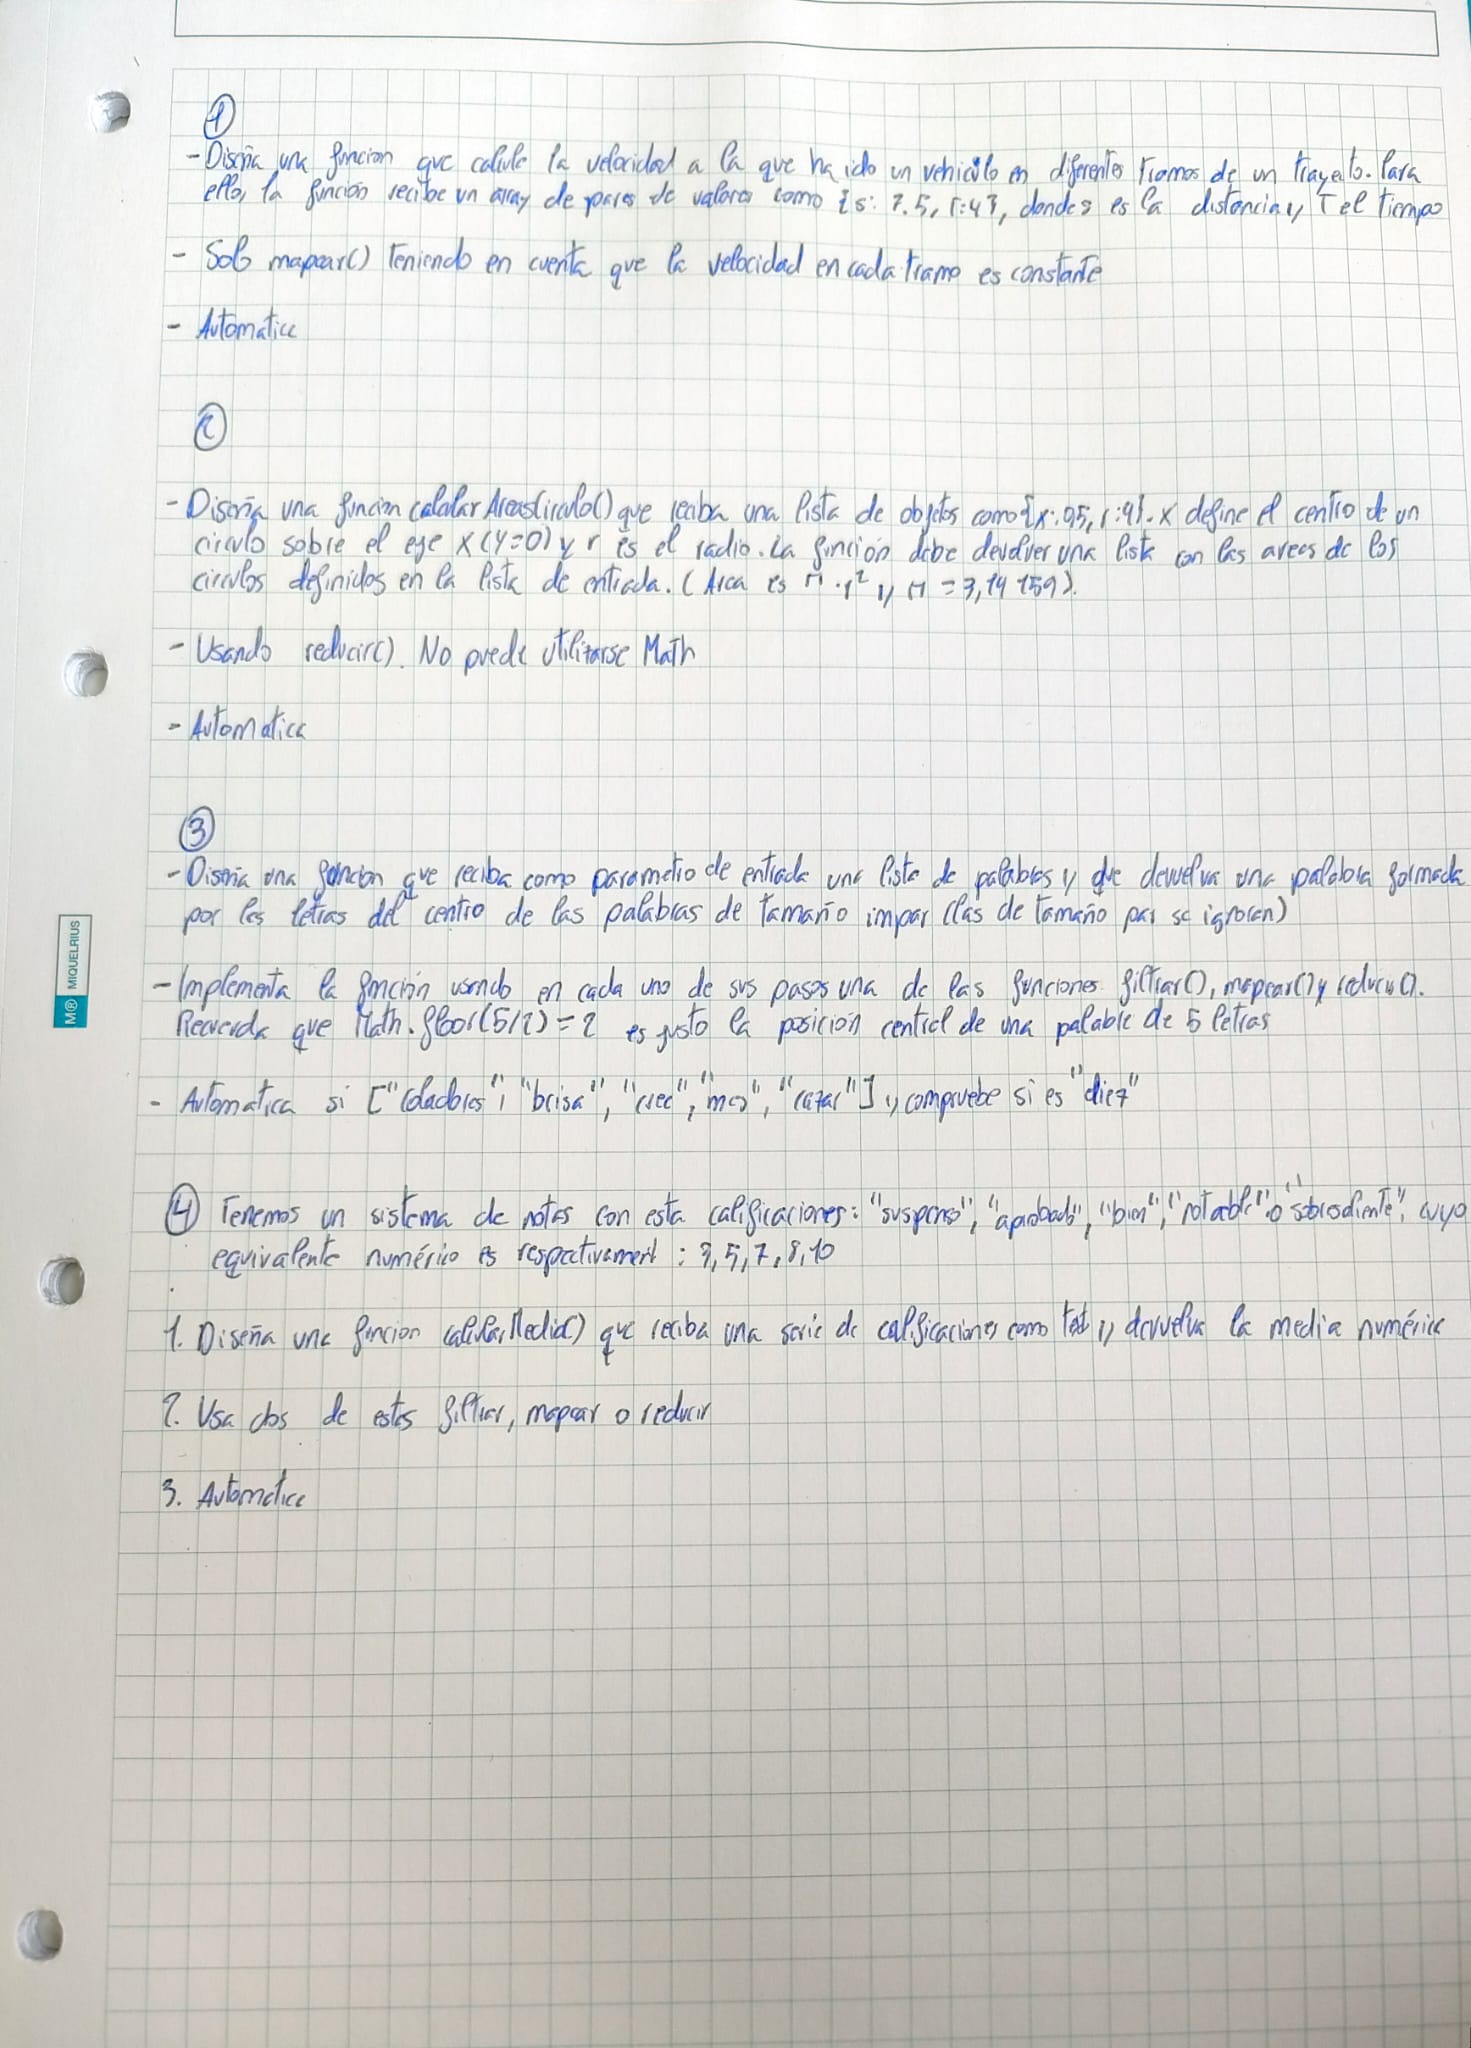 ①
- Diseña una funcion que calcule la velocidad a la que ha ido un vehiculo en diferentes tramos de un trayecto. Para
ello, la función recibe un array de pares de valores como {s: 7.5, t:4}, donde s es la distancia y T el tiempo
- Solo mapear() Teniendo en cuenta que la velocidad en cada tramo es constante
- Automatica
②
- Diseña una funcion calcularAreasCirculo() que reciba una lista de objetos como {x:0.5, r:4}. x define el centro de un
circulo sobre el eje x (y=0) y r es el radio. La función debe devolver una lista con las areas de los
circulos definidos en la lista de entrada. (Area es π·r² y π = 3,14159).
- Usando reducir(). No puede utilizarse Math
- Automatica
③
- Diseña una funcion que reciba como parametro de entrada una lista de palabras y que devuelva una palabra formada
por las letras del centro de las palabras de tamaño impar (las de tamaño par se ignoran)
- Implementa la función usando en cada uno de sus pasos una de las funciones filtrar(), mapear() y reducir().
Recuerda que Math.floor(5/2)=2 es justo la posición central de una palabra de 5 letras
- Automatica si ["Coladores", "brisa", "cree", "mes", "cazar"] y compruebe si es "diez"
④ Tenemos un sistema de notas con esta calificaciones: "suspenso", "aprobado", "bien", "notable" o "sobresaliente", cuyo
equivalente numérico es respectivament : 3, 5, 7, 8, 10
1. Diseña una funcion calcularMedia() que reciba una serie de calificaciones como y devuelva la media numérica
2. Usa dos de estas filtrar, mapear o reducir
3. Automatica
M® MIQUELRIUS